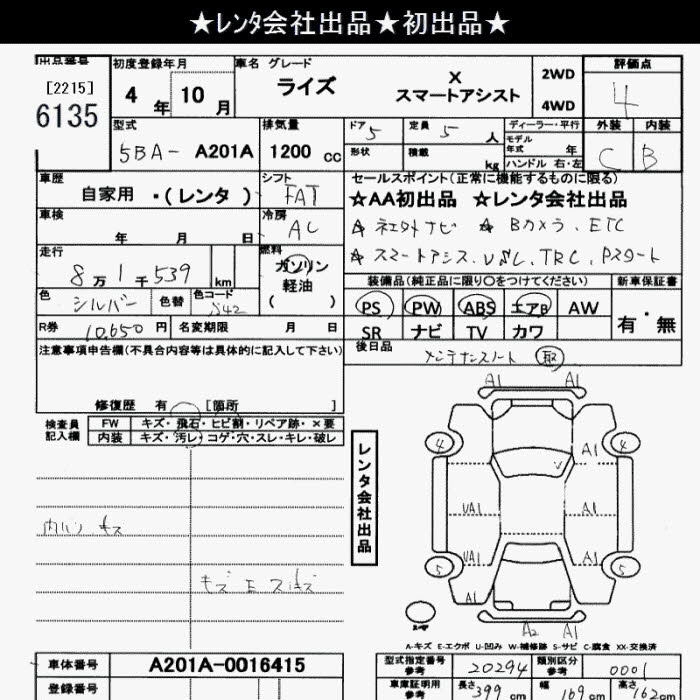 ★レンタ会社出品★初出品★
出品番号 初度登録年月 車名 グレード 評価点
[2215] 4 年 10 月 ライズ X 2WD 4
6135 スマートアシスト 4WD
型式 排気量 ドア 5 定員 5 人 ディーラー・平行 外装 内装
5BA- A201A 1200 cc 形状 積載 kg モデル年式 年 C B
ハンドル 右・左
車歴 シフト セールスポイント(正常に機能するものに限る)
自家用 ・(レンタ) FAT ☆AA初出品 ☆レンタ会社出品
車検 冷房 ☆ ナビ ☆ Bカメラ、ETC
年 月 日 AC
走行 燃料 ☆ スマートアシス、VSC、TRC、Pスタート
8万1千539 km ガソリン 装備品(純正品に限り○をつけてください) 新車保証書
軽油 PS PW ABS エアB AW 有・無
色 シルバー 色替 色コード S42 ( ) SR ナビ TV カワ
R券 10,650 円 名変期限 月 日 後日品
注意事項申告欄(不具合内容等は具体的に記入して下さい) メンテナンスノート 取
修復歴 有 [箇所 ]
検査員 FW キズ・飛石・ヒビ割・リペア跡・×要
記入欄 内装 キズ・汚レ・コゲ・穴・スレ・キレ・破レ
レンタ会社出品
A1 A1
4 4
A1
UA1 A1
UA1 A1
5 5
A1
A2 A1
キズ
キズ E
A-キズ E-エクボ U-凹み W-補修跡 S-サビ C-腐食 XX-交換済
車体番号 A201A-0016415 型式指定番号 参考 20294 類別区分 参考 0001
登録番号 車庫証明用 参考 長さ 399 cm 幅 169 cm 高さ 162 cm